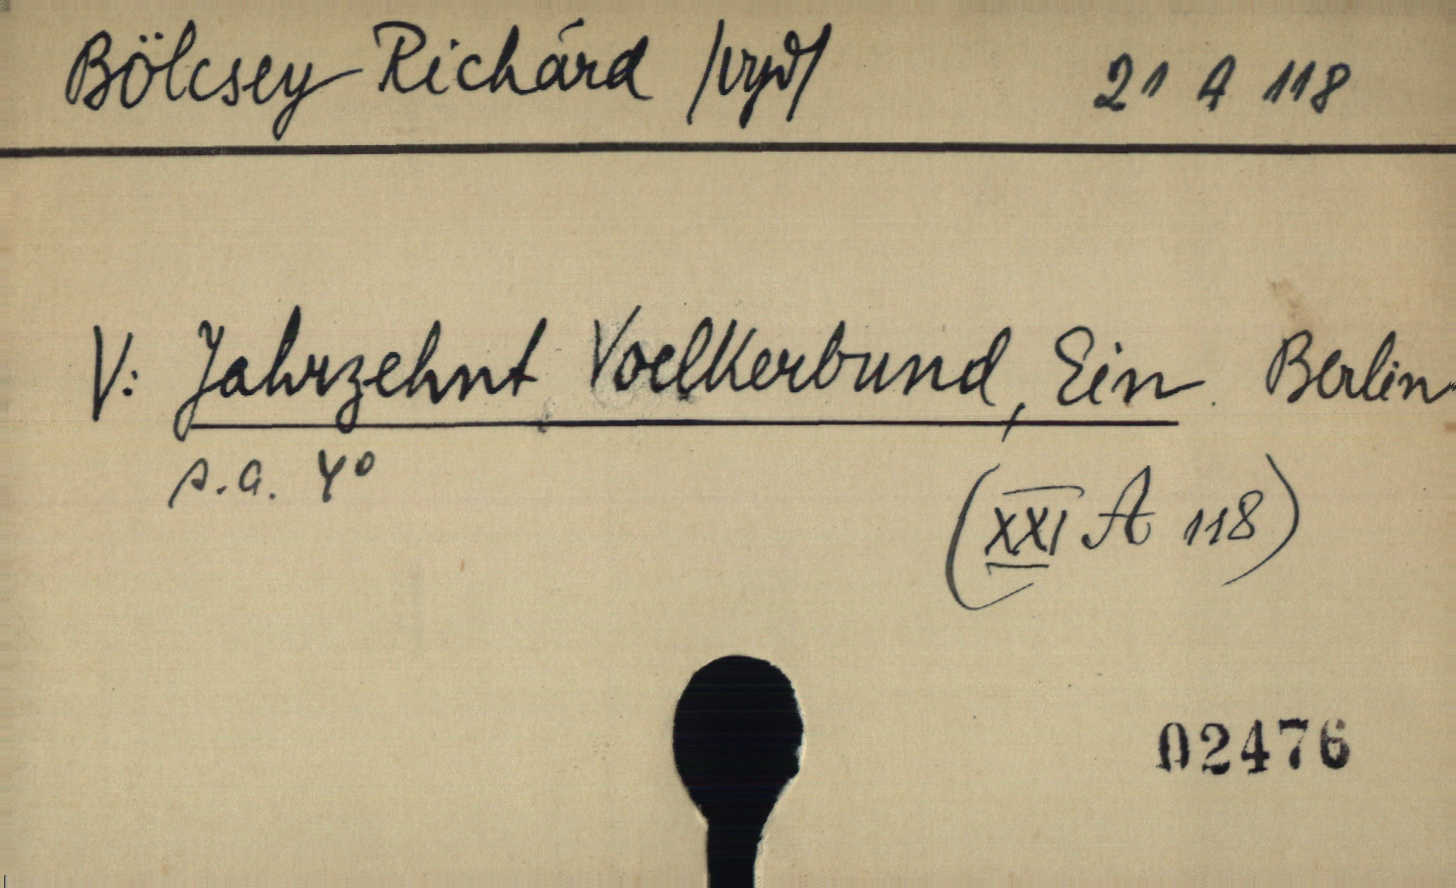 Bölcsey Richárd /vyd/ 21 A 118
V: Jahrzehnt Voelkerbund, Ein. Berlin
s.a. 4°
(XXI A 118)
02476